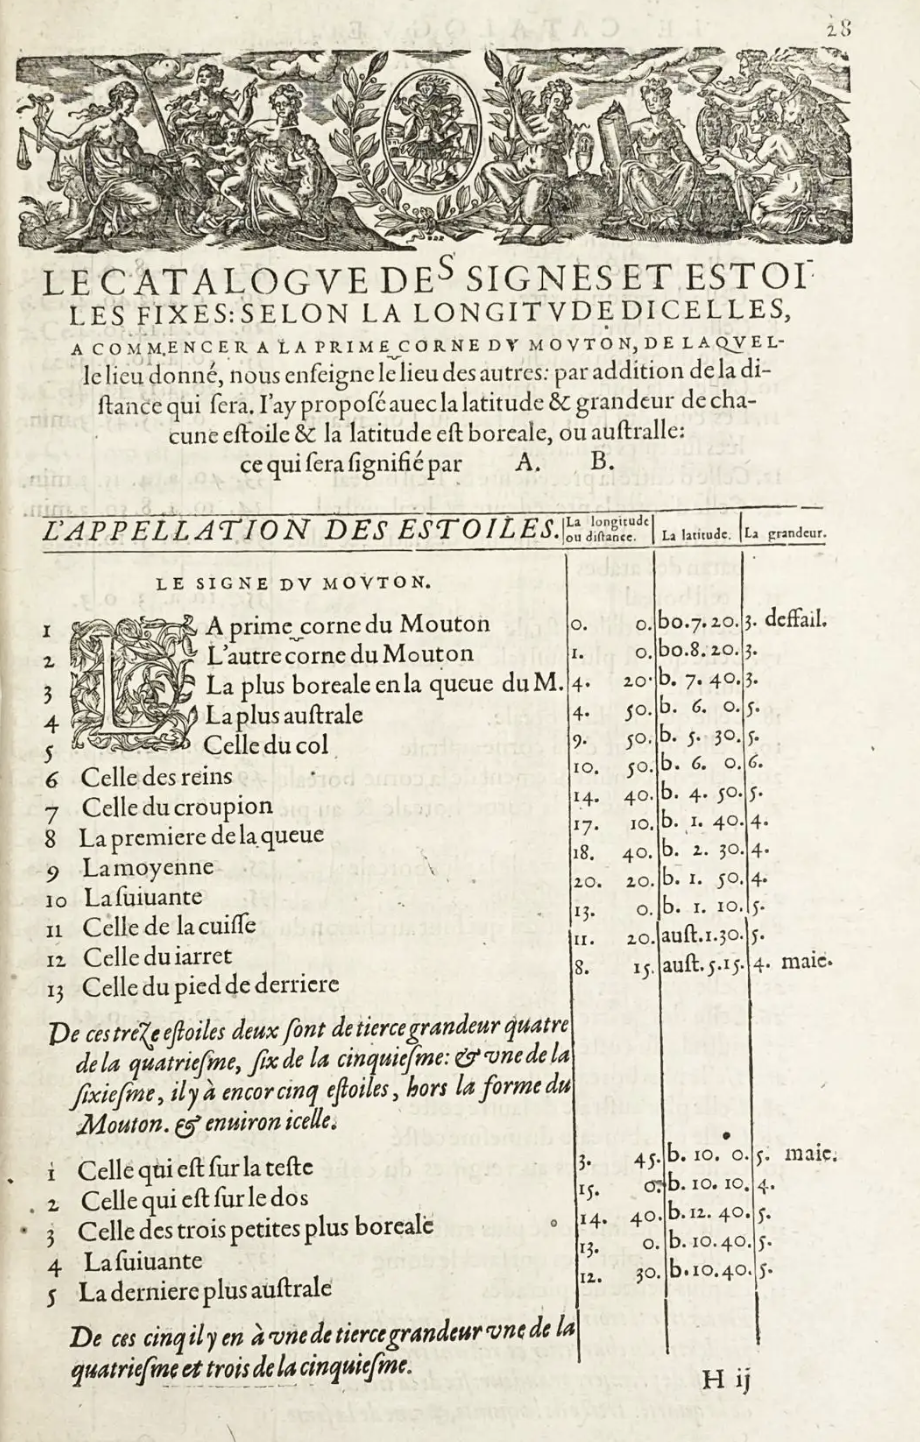 28
LE CATALOGVE DES SIGNES ET ESTOI-
LES FIXES: SELON LA LONGITVDE DICELLES,
A COMMENCER A LA PRIME CORNE DV MOVTON, DE LAQVEL-
le lieu donné, nous enſeigne le lieu des autres: par addition de la di-
ſtance qui ſera. I'ay propoſé auec la latitude & grandeur de cha-
cune eſtoile & la latitude eſt boreale, ou auſtralle:
ce qui ſera ſignifié par A. B.
L'APPELLATION DES ESTOILES. | La longitude ou diſtance. | La latitude. | La grandeur.
LE SIGNE DV MOVTON.
1 LA prime corne du Mouton 0. 0. bo. 7. 20. 3. deffail.
2 L'autre corne du Mouton 1. 0. bo. 8. 20. 3.
3 La plus boreale en la queue du M. 4. 20. b. 7. 40. 3.
4 La plus auſtrale 4. 50. b. 6. 0. 5.
5 Celle du col 9. 50. b. 5. 30. 5.
6 Celle des reins 10. 50. b. 6. 0. 6.
7 Celle du croupion 14. 40. b. 4. 50. 5.
8 La premiere de la queue 17. 10. b. 1. 40. 4.
9 La moyenne 18. 40. b. 2. 30. 4.
10 La ſuiuante 20. 20. b. 1. 50. 4.
11 Celle de la cuiſſe 13. 0. b. 1. 10. 5.
12 Celle du iarret 11. 20. auſt. 1. 30. 5.
13 Celle du pied de derriere 8. 15. auſt. 5. 15. 4. maie.
De ces treze eſtoiles deux ſont de tierce grandeur quatre
de la quatrieſme, ſix de la cinquieſme: & vne de la
ſixieſme, il y à encor cinq eſtoiles, hors la forme du
Mouton. & enuiron icelle.
1 Celle qui eſt ſur la teſte 3. 45. b. 10. 0. 5. maie.
2 Celle qui eſt ſur le dos 15. 0. b. 10. 10. 4.
3 Celle des trois petites plus boreale 14. 40. b. 12. 40. 5.
4 La ſuiuante 13. 0. b. 10. 40. 5.
5 La derniere plus auſtrale 12. 30. b. 10. 40. 5.
De ces cinq il y en à vne de tierce grandeur vne de la
quatrieſme et trois de la cinquieſme.
H ij